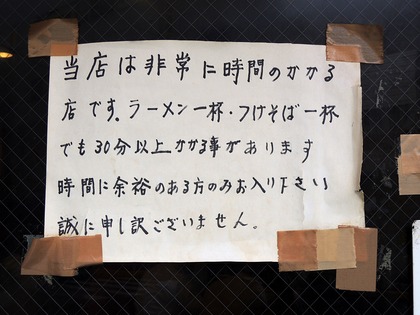 当店は非常に時間のかかる
店です。ラーメン一杯・つけそば一杯
でも30分以上かかる事があります
時間に余裕のある方のみお入り下さい
誠に申し訳ございません。